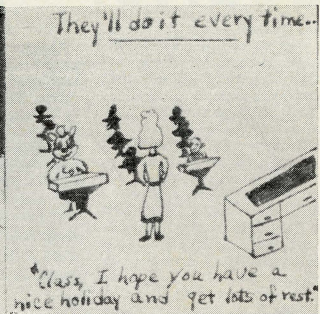 They'll do it every time..
"Class, I hope you have a
nice holiday and get lots of rest."